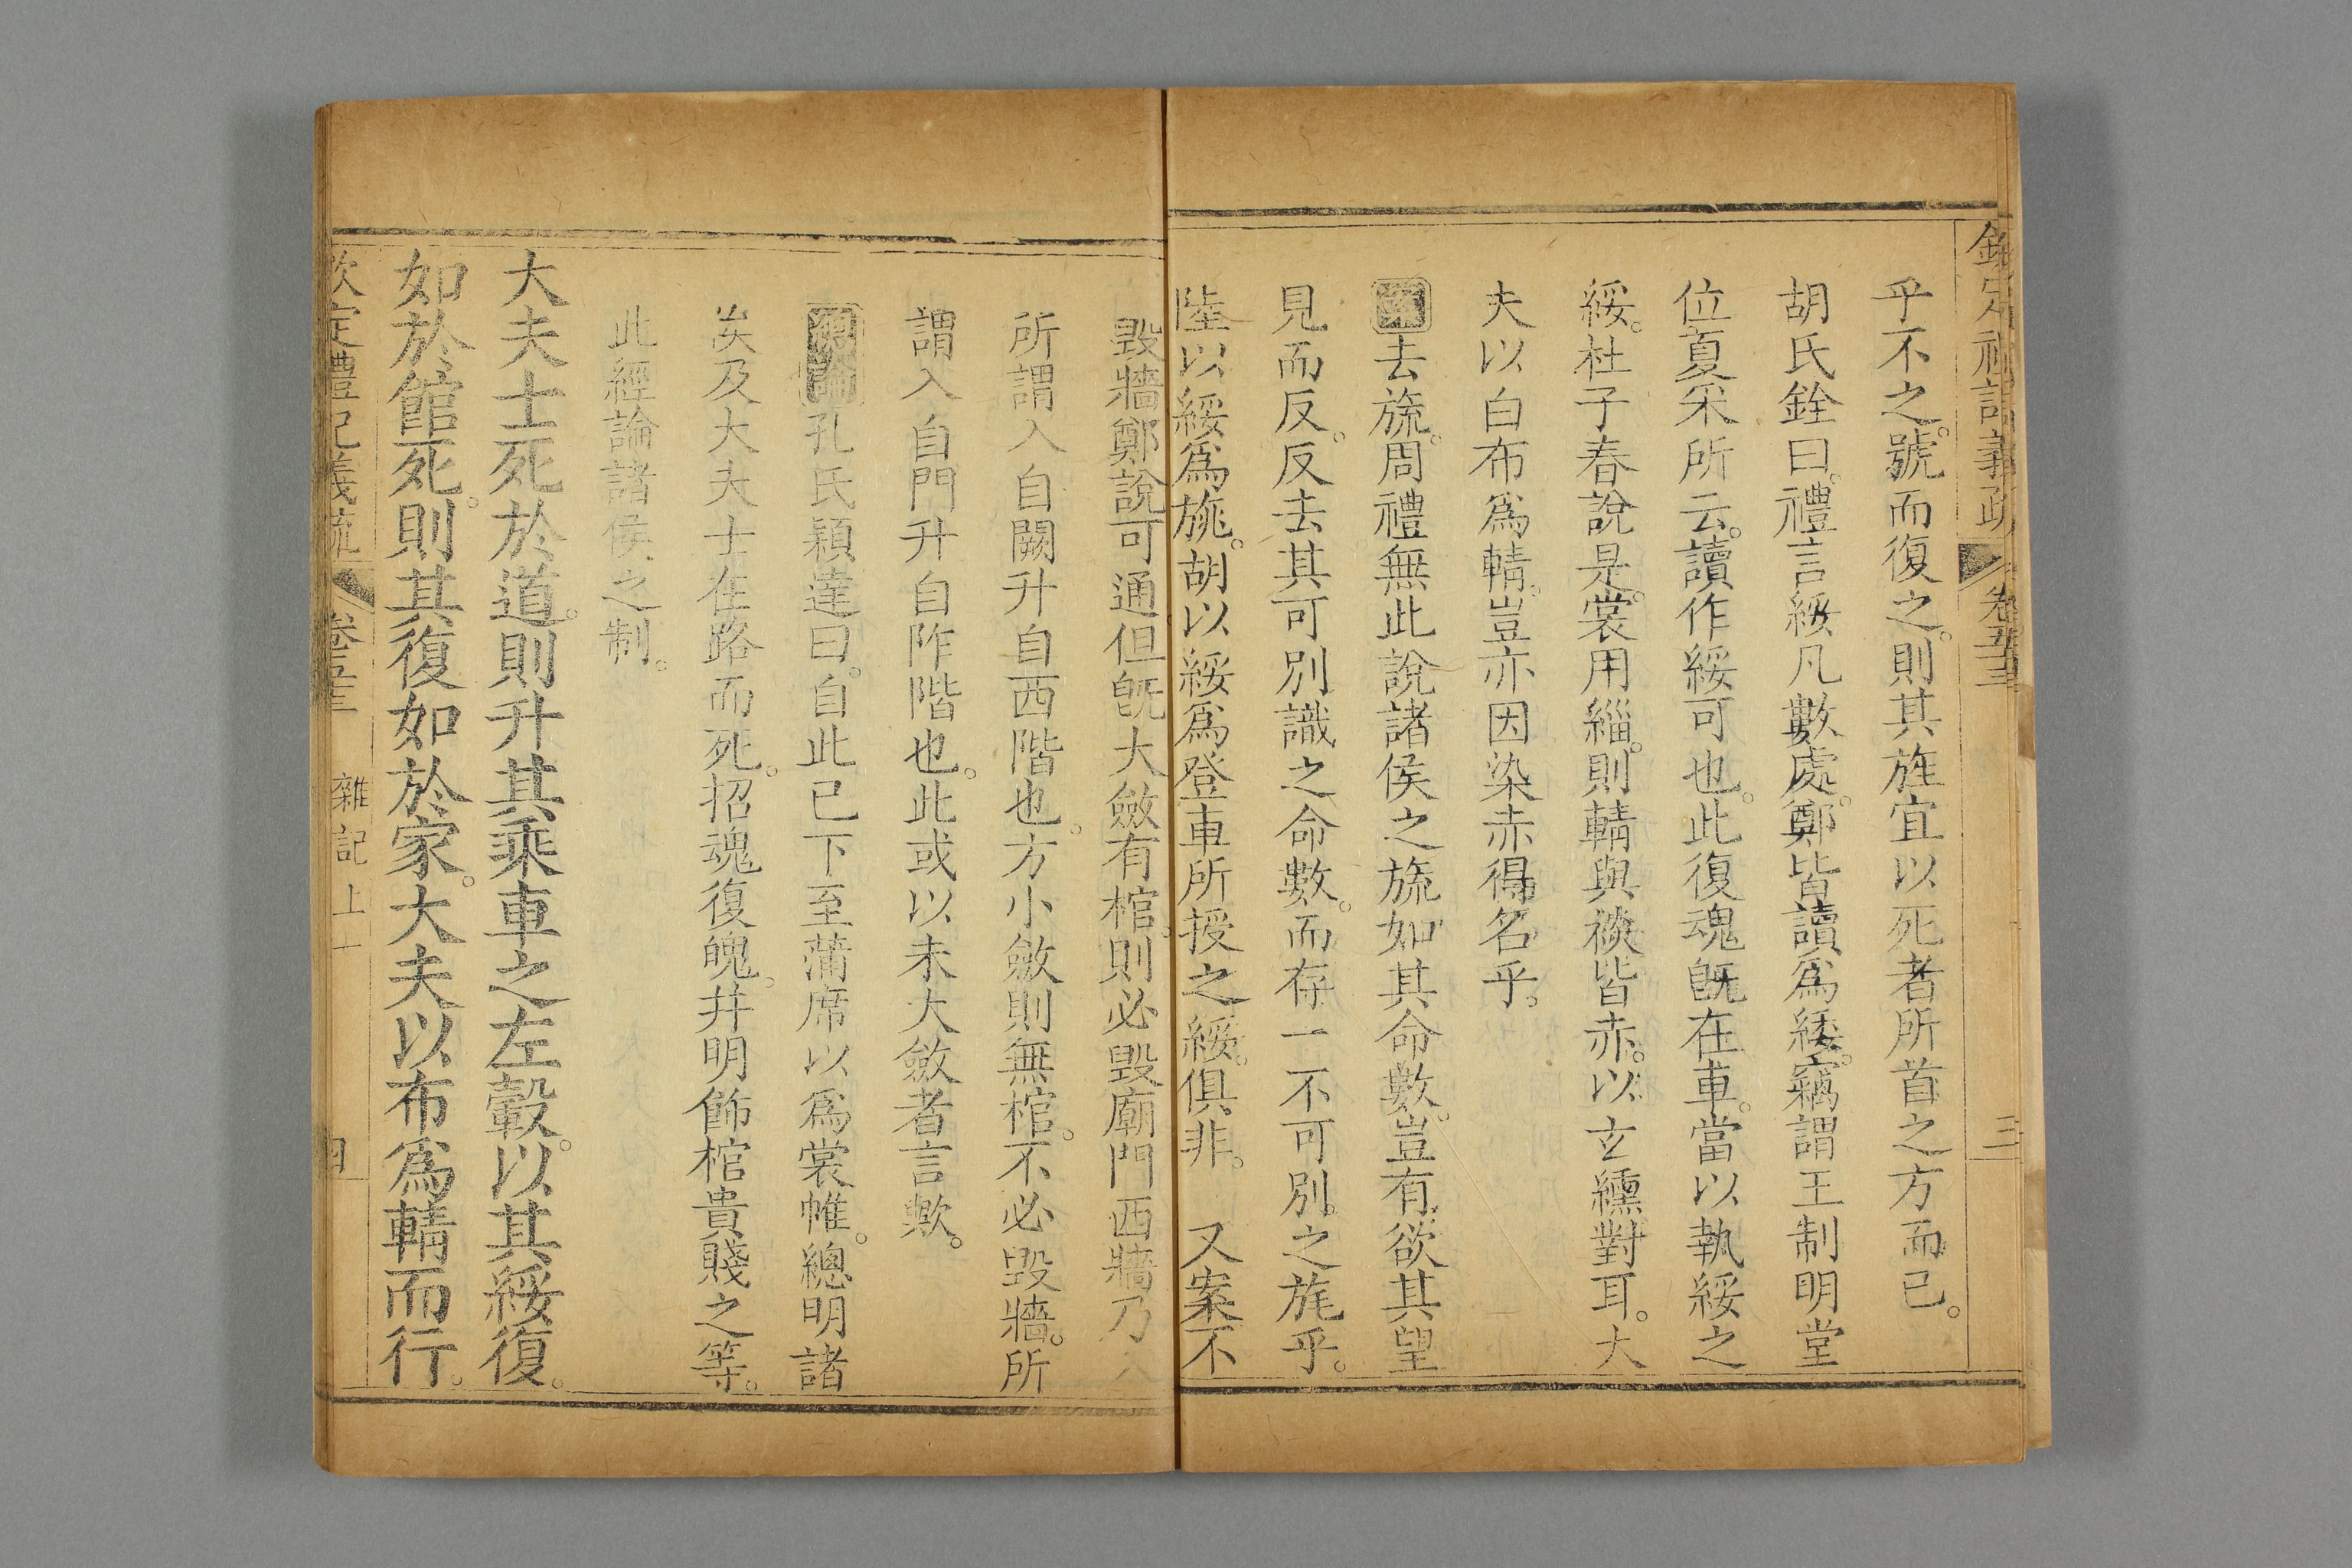 欽定禮記義疏 卷五十三 三
乎不之。號而復之。則其旌宜以死者所首之方而已。
胡氏銓曰。禮言綏凡數處。鄭皆讀為緌。竊謂王制明堂
位夏采所云。讀作綏可也。此復魂旣在車。當以執綏之
綏。杜子春說是。裳用緇。則輤與裧皆赤。以玄纁對耳。大
夫以白布為輤。豈亦因染赤得名乎。
案去旒。周禮無此說諸侯之旒如其命數。豈有欲其望
見而反反去其可別識之命數。而存一不可別之旄乎。
陸以綏為旄。胡以綏為登車所授之綏。俱非。 又案不
毀牆鄭說可通但旣大斂有棺則必毀廟門西牆乃入
所謂入自闕升自西階也。方小斂則無棺。不必毀牆。所
謂入自門升自阼階也。此或以未大斂者言歟。
總論孔氏穎達曰。自此已下至蒲席以為裳帷。總明諸
侯及大夫士在路而死。招魂復魄。幷明飾棺貴賤之等。
此經論諸侯之制。
大夫士死於道。則升其乘車之左轂。以其綏復。
如於館死。則其復如於家。大夫以布為輤而行。
欽定禮記義疏 卷五十三 雜記上 四